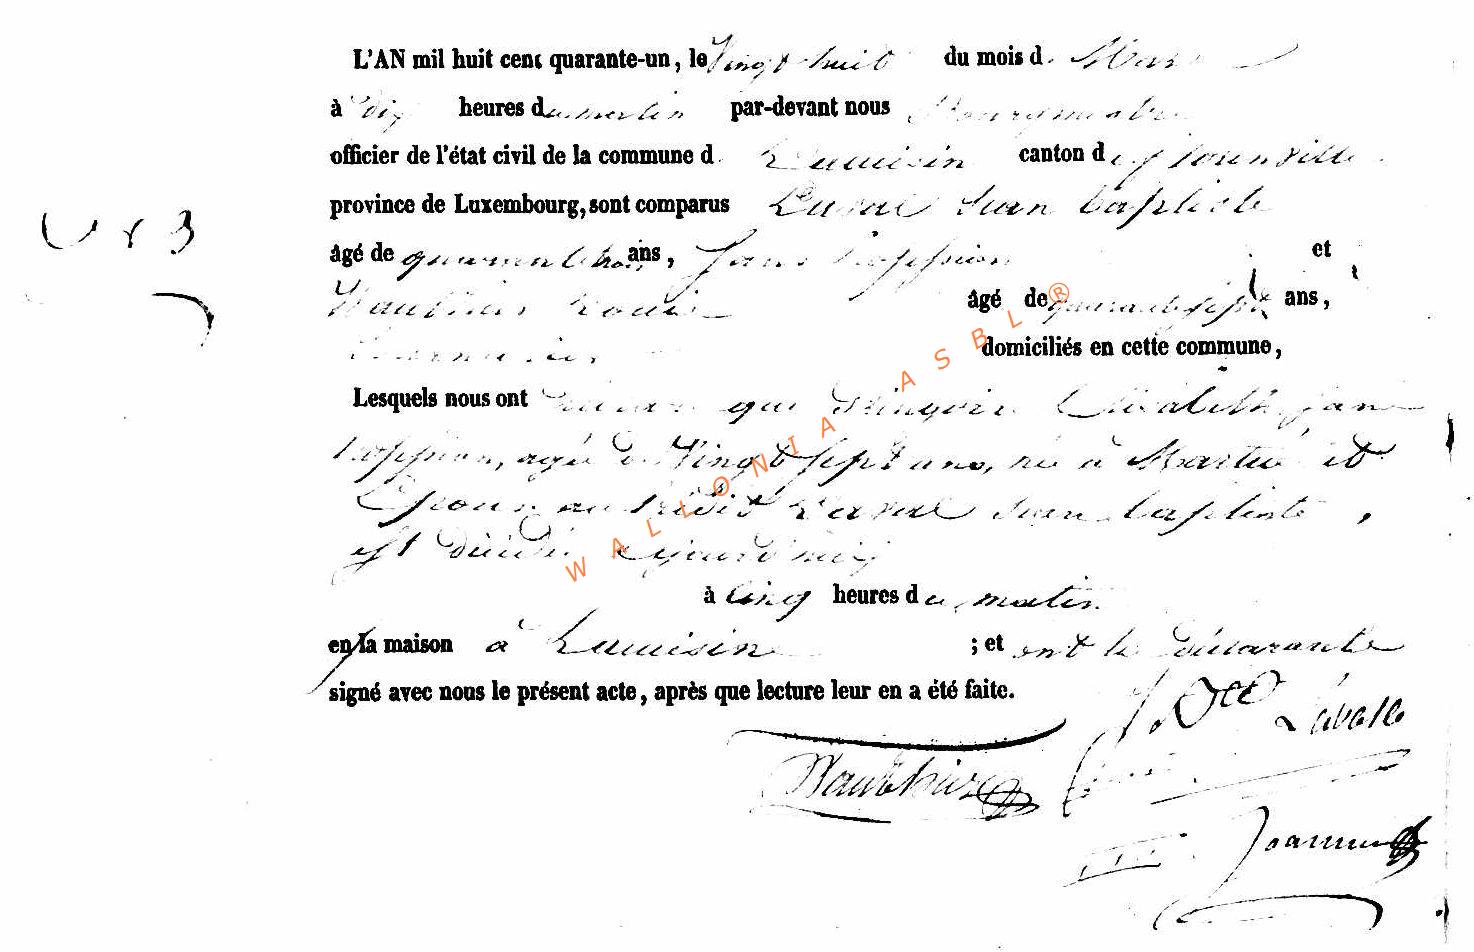 L'AN mil huit cent quarante-un, le Vingt huit du mois d. Mars
à dix heures du matin par-devant nous Bourgmestre
officier de l'état civil de la commune d. Lacuisine canton de florenville
province de Luxembourg, sont comparus Laval Jean baptiste
N° 3
âgé de quarante trois ans, sans profession et
Wauthier Louis âgé de quarante sept ans,
domiciliés en cette commune,
Lesquels nous ont déclaré que Elisabeth, sans
profession, agée de Vingt sept ans, née à Martué et
Epouse au susdit Laval Jean baptiste,
est décédée aujourd'huy
à cinq heures du matin
en la maison à Lacuisine ; et ont les déclarants
signé avec nous le présent acte, après que lecture leur en a été faite.
Lavalle
Wauthier
WALLONIA ASBL ®